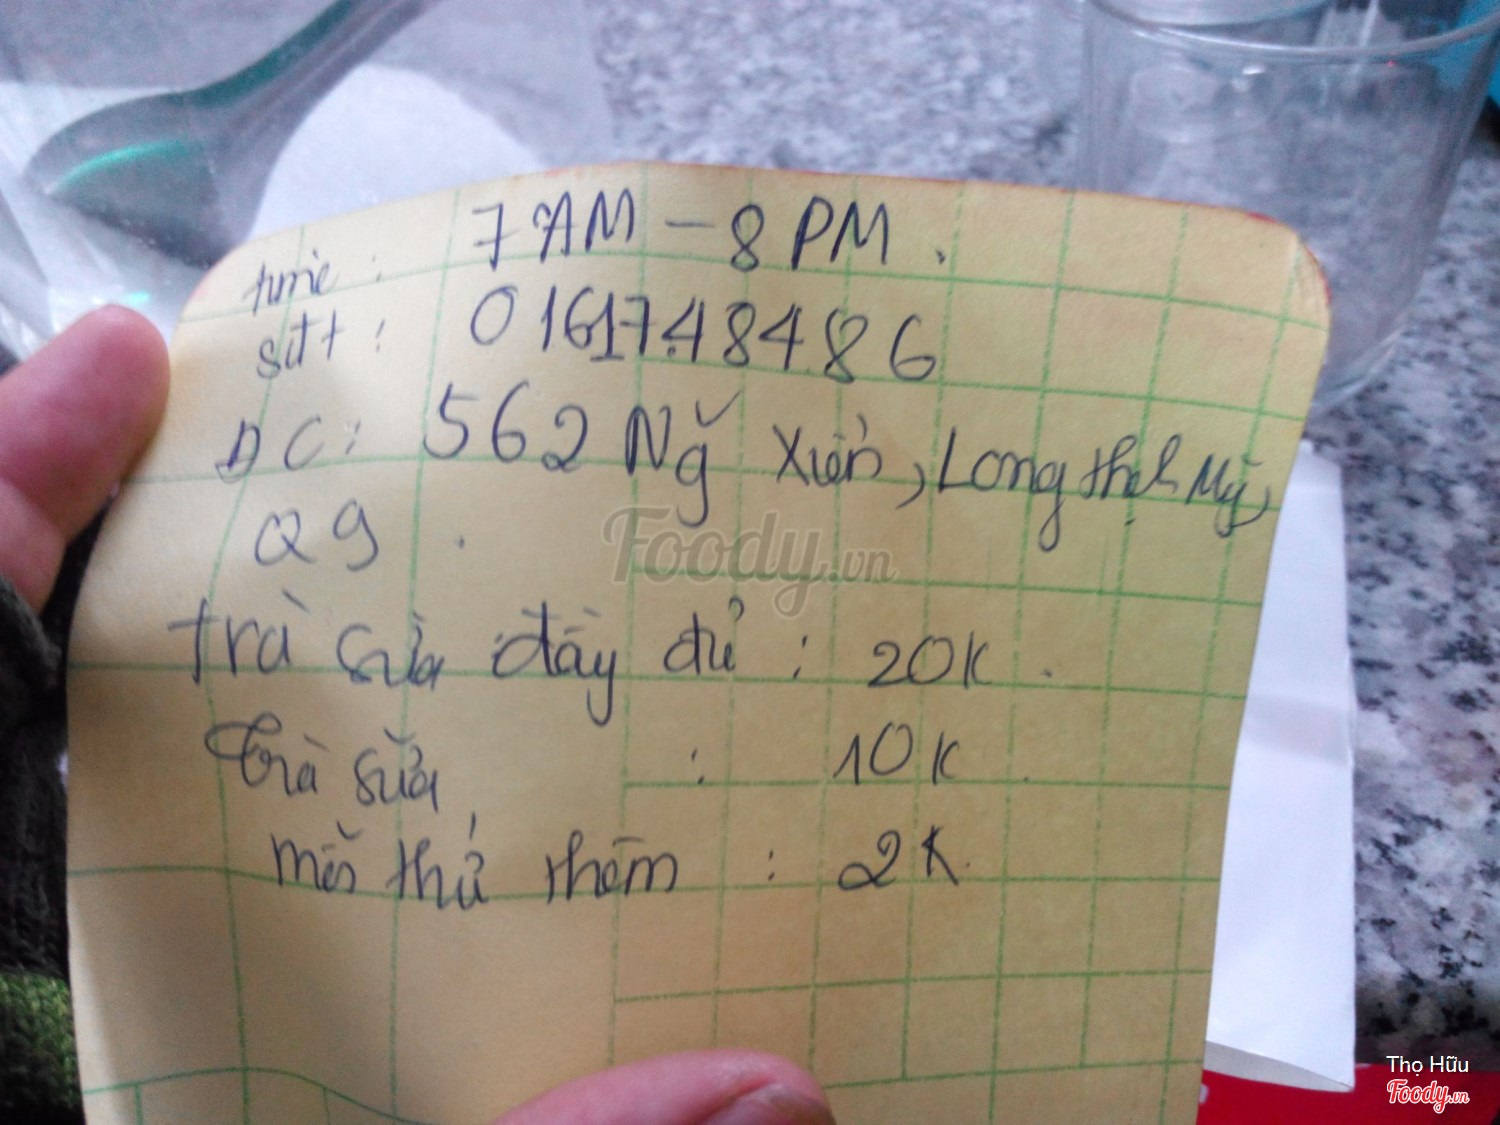 time : 7 AM - 8 PM.
sđt : 0161748486
ĐC: 562 Ng̃ Xiển, Long Thạh Mỹ,
Q9.
Trà sữa đầy đủ : 20K.
Trà sữa : 10K.
Món thứ thêm : 2K.
Foody.vn
Thọ Hữu
Foody.vn